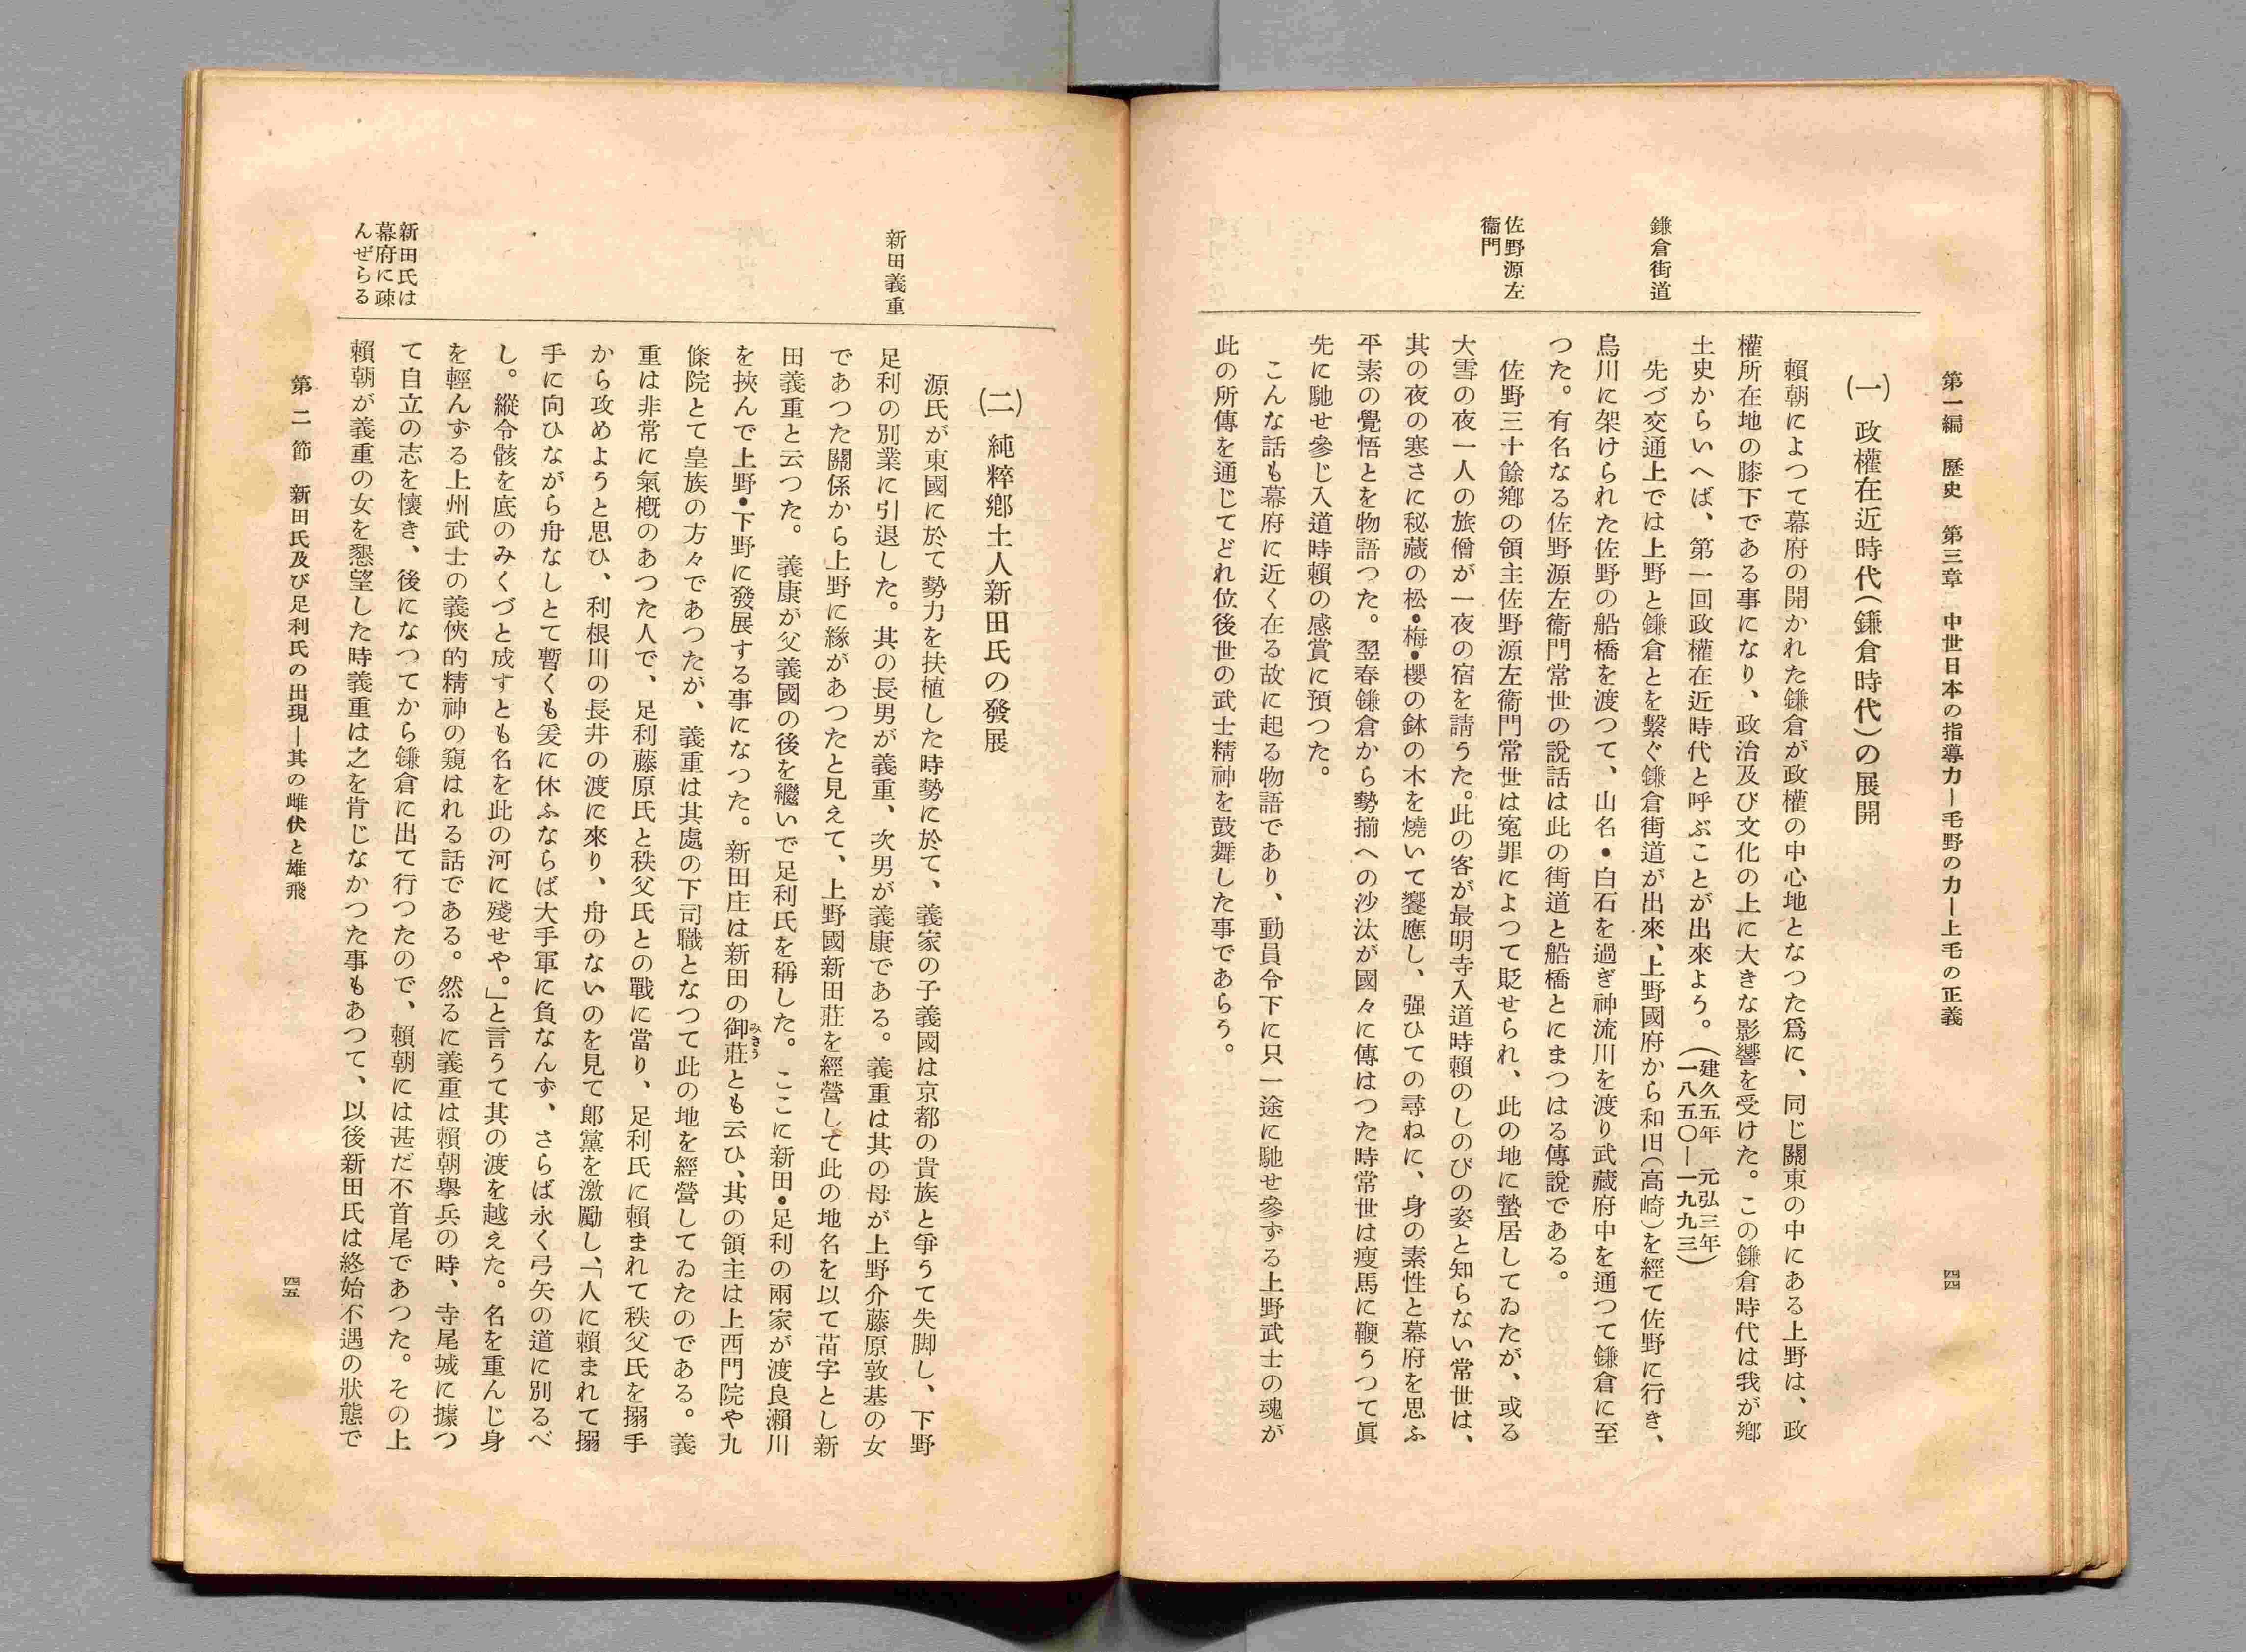 第一編　歷史　第三章　中世日本の指導力―毛野の力―上毛の正義
四四
鎌倉街道
佐野源左
衞門
(一)　政權在近時代(鎌倉時代)の展開
賴朝によつて幕府の開かれた鎌倉が政權の中心地となつた爲に、同じ關東の中にある上野は、政
權所在地の膝下である事になり、政治及び文化の上に大きな影響を受けた。この鎌倉時代は我が鄕
土史からいへば、第一回政權在近時代と呼ぶことが出來よう。(建久五年　元弘三年
一八五〇―一九九三)
先づ交通上では上野と鎌倉とを繫ぐ鎌倉街道が出來、上野國府から和田(高崎)を經て佐野に行き、
烏川に架けられた佐野の船橋を渡つて、山名・白石を過ぎ神流川を渡り武藏府中を通つて鎌倉に至
つた。有名なる佐野源左衞門常世の說話は此の街道と船橋とにまつはる傳說である。
佐野三十餘鄕の領主佐野源左衞門常世は寃罪によつて貶せられ、此の地に蟄居してゐたが、或る
大雪の夜一人の旅僧が一夜の宿を請うた。此の客が最明寺入道時賴のしのびの姿と知らない常世は、
其の夜の寒さに秘藏の松・梅・櫻の鉢の木を燒いて饗應し、强ひての尋ねに、身の素性と幕府を思ふ
平素の覺悟とを物語つた。翌春鎌倉から勢揃への沙汰が國々に傳はつた時常世は瘦馬に鞭うつて眞
先に馳せ參じ入道時賴の感賞に預つた。
こんな話も幕府に近く在る故に起る物語であり、動員令下に只一途に馳せ參ずる上野武士の魂が
此の所傳を通じてどれ位後世の武士精神を鼓舞した事であらう。
新田義重
新田氏は
幕府に疎
んぜらる
(二)　純粹鄕土人新田氏の發展
源氏が東國に於て勢力を扶植した時勢に於て、義家の子義國は京都の貴族と爭うて失脚し、下野
足利の別業に引退した。其の長男が義重、次男が義康である。義重は其の母が上野介藤原敦基の女
であつた關係から上野に緣があつたと見えて、上野國新田莊を經營して此の地名を以て苗字とし新
田義重と云つた。義康が父義國の後を繼いで足利氏を稱した。ここに新田・足利の兩家が渡良瀨川
を挾んで上野・下野に發展する事になつた。新田庄は新田の御莊とも云ひ、其の領主は上西門院や九
みさう
條院とて皇族の方々であつたが、義重は其處の下司職となつて此の地を經營してゐたのである。義
重は非常に氣槪のあつた人で、足利藤原氏と秩父氏との戰に當り、足利氏に賴まれて秩父氏を搦手
から攻めようと思ひ、利根川の長井の渡に來り、舟のないのを見て郞黨を激勵し、「人に賴まれて搦
手に向ひながら舟なしとて暫くも爰に休ふならば大手軍に負なんず、さらば永く弓矢の道に別るべ
し。縱令骸を底のみくづと成すとも名を此の河に殘せや。」と言うて其の渡を越えた。名を重んじ身
を輕んずる上州武士の義俠的精神の窺はれる話である。然るに義重は賴朝擧兵の時、寺尾城に據つ
て自立の志を懷き、後になつてから鎌倉に出て行つたので、賴朝には甚だ不首尾であつた。その上
賴朝が義重の女を懇望した時義重は之を肯じなかつた事もあつて、以後新田氏は終始不遇の狀態で
第二節　新田氏及び足利氏の出現―其の雌伏と雄飛
四五